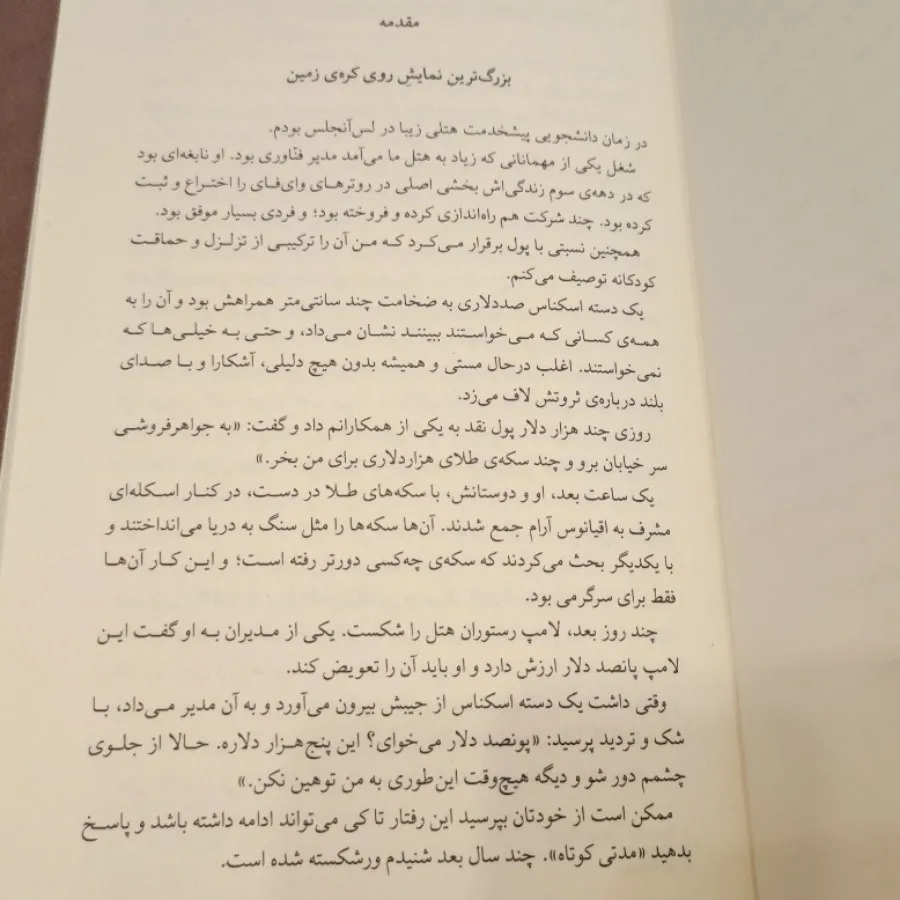 مقدمه
بزرگ‌ترین نمایشِ روی کره‌ی زمین
در زمان دانشجویی پیشخدمت هتلی زیبا در لس‌آنجلس بودم.
شغل یکی از مهمانانی که زیاد به هتل ما می‌آمد مدیر فنّاوری بود. او نابغه‌ای بود
که در دهه‌ی سوم زندگی‌اش بخشی اصلی در روترهای وای‌فای را اختراع و ثبت
کرده بود. چند شرکت هم راه‌اندازی کرده و فروخته بود؛ و فردی بسیار موفق بود.
همچنین نسبتی با پول برقرار می‌کرد که من آن را ترکیبی از تزلزل و حماقت
کودکانه توصیف می‌کنم.
یک دسته اسکناس صددلاری به ضخامت چند سانتی‌متر همراهش بود و آن را به
همه‌ی کسانی که می‌خواستند ببینند نشان می‌داد، و حتی به خیلی‌ها که
نمی‌خواستند. اغلب درحال مستی و همیشه بدون هیچ دلیلی، آشکارا و با صدای
بلند درباره‌ی ثروتش لاف می‌زد.
روزی چند هزار دلار پول نقد به یکی از همکارانم داد و گفت: «به جواهرفروشی
سر خیابان برو و چند سکه‌ی طلای هزاردلاری برای من بخر.»
یک ساعت بعد، او و دوستانش، با سکه‌های طلا در دست، در کنار اسکله‌ای
مشرف به اقیانوس آرام جمع شدند. آن‌ها سکه‌ها را مثل سنگ به دریا می‌انداختند و
با یکدیگر بحث می‌کردند که سکه‌ی چه‌کسی دورتر رفته است؛ و این کار آن‌ها
فقط برای سرگرمی بود.
چند روز بعد، لامپ رستوران هتل را شکست. یکی از مدیران به او گفت این
لامپ پانصد دلار ارزش دارد و او باید آن را تعویض کند.
وقتی داشت یک دسته اسکناس از جیبش بیرون می‌آورد و به آن مدیر می‌داد، با
شک و تردید پرسید: «پونصد دلار می‌خوای؟ این پنج‌هزار دلاره. حالا از جلوی
چشمم دور شو و دیگه هیچ‌وقت این‌طوری به من توهین نکن.»
ممکن است از خودتان بپرسید این رفتار تا کی می‌تواند ادامه داشته باشد و پاسخ
بدهید «مدتی کوتاه». چند سال بعد شنیدم ورشکسته شده است.